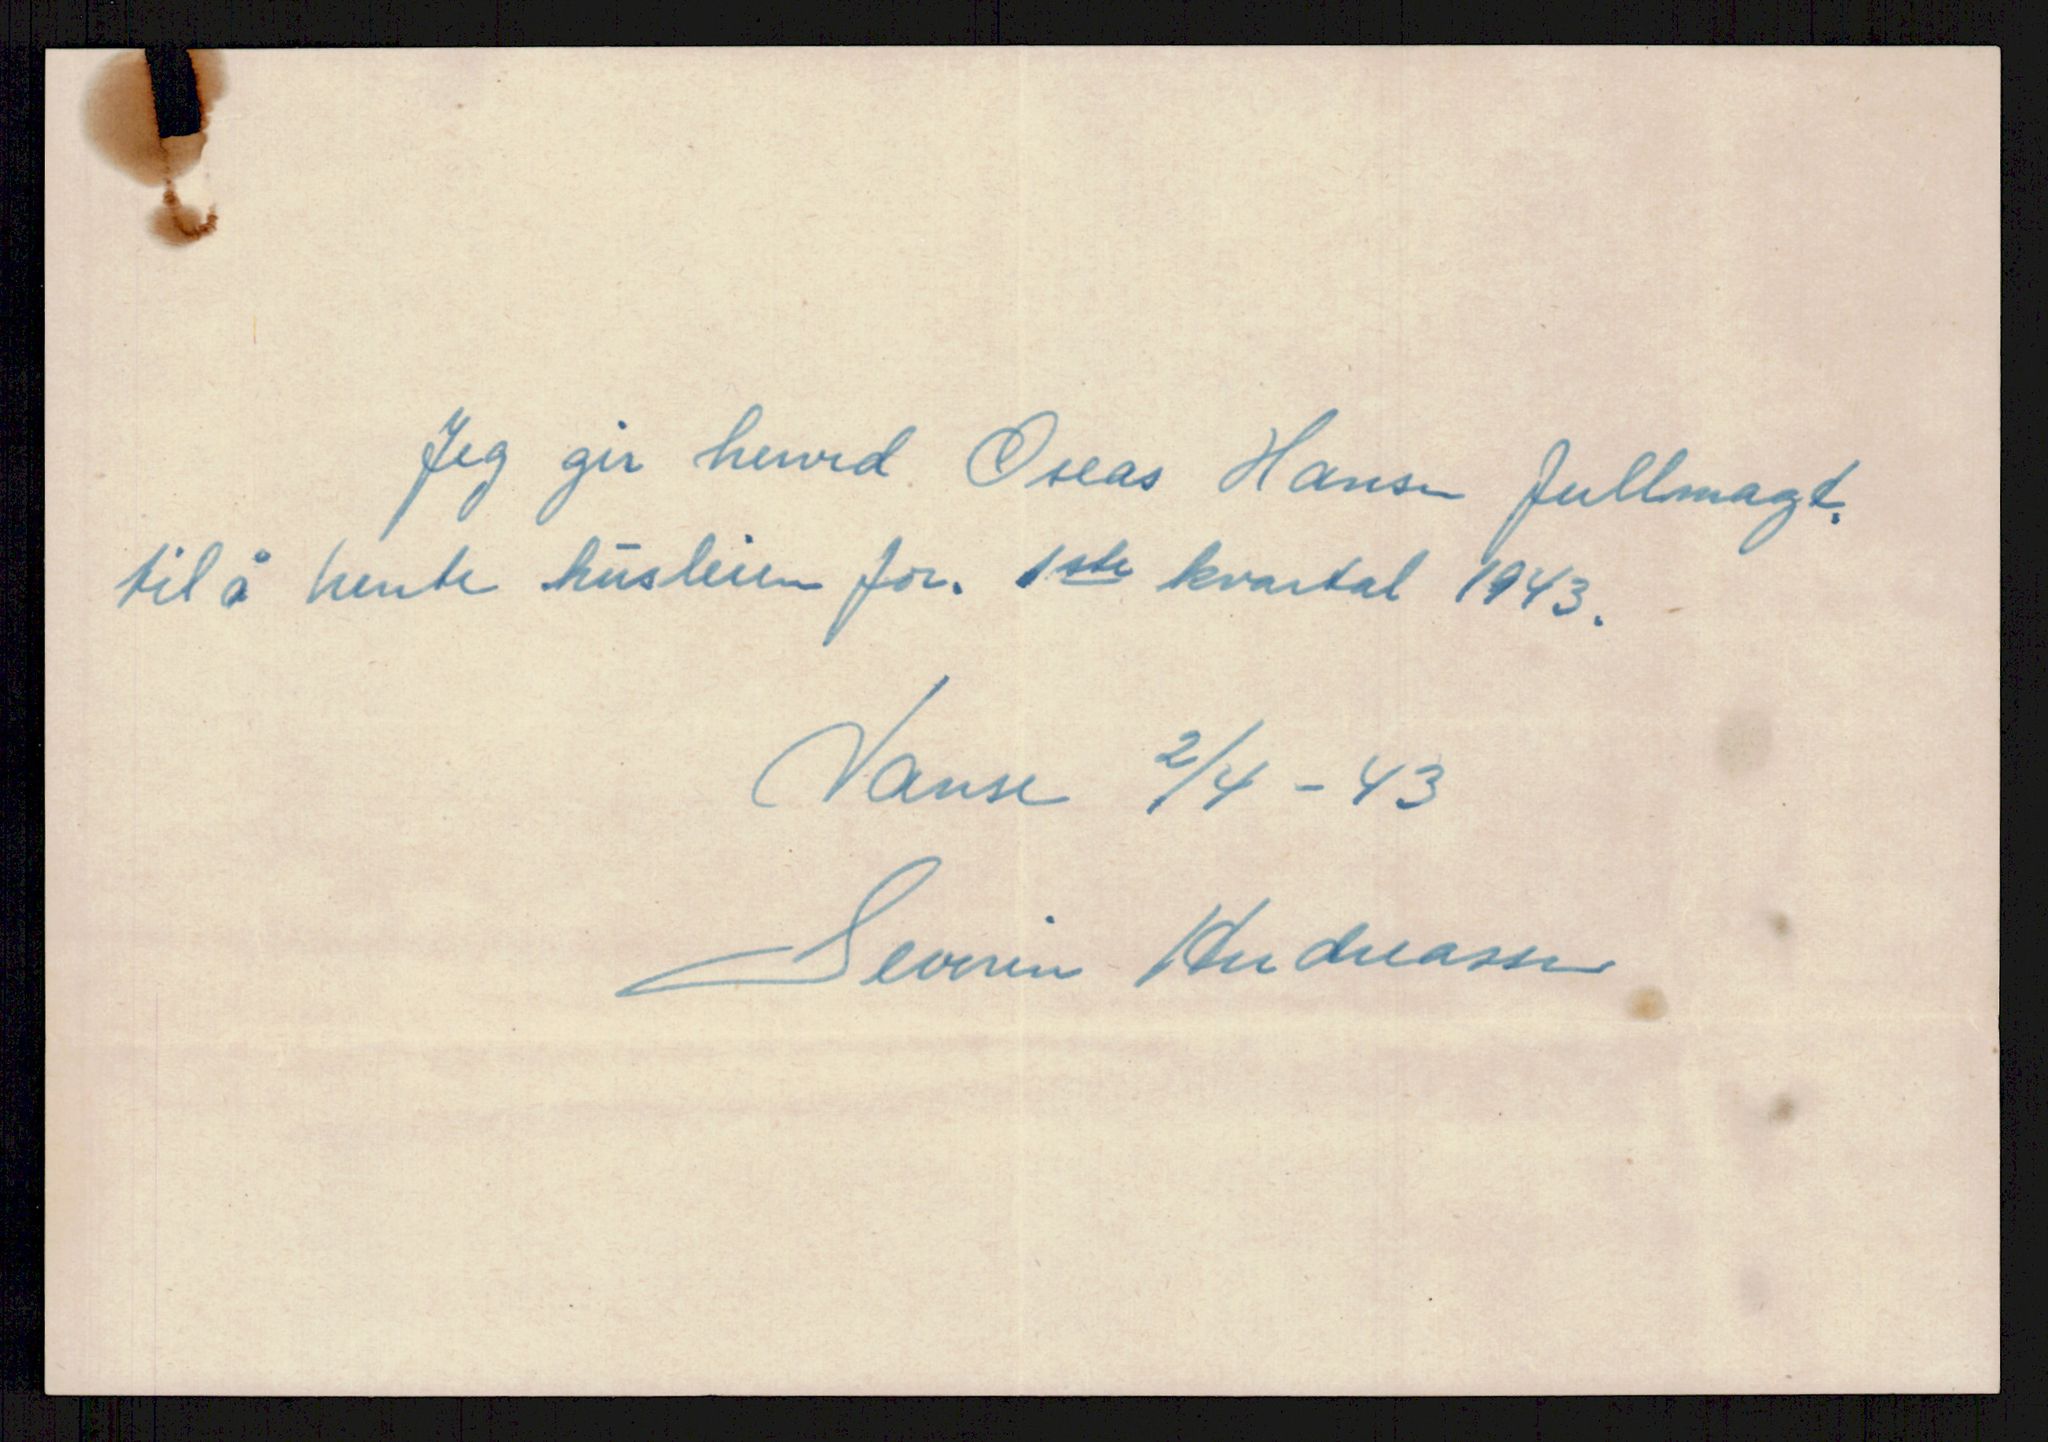 Jeg gir herved Oseas Hansen fullmagt.
til å hente husleien for. 1ste kvartal 1943.
Vanse 2/4 - 43
Severin Andreassen